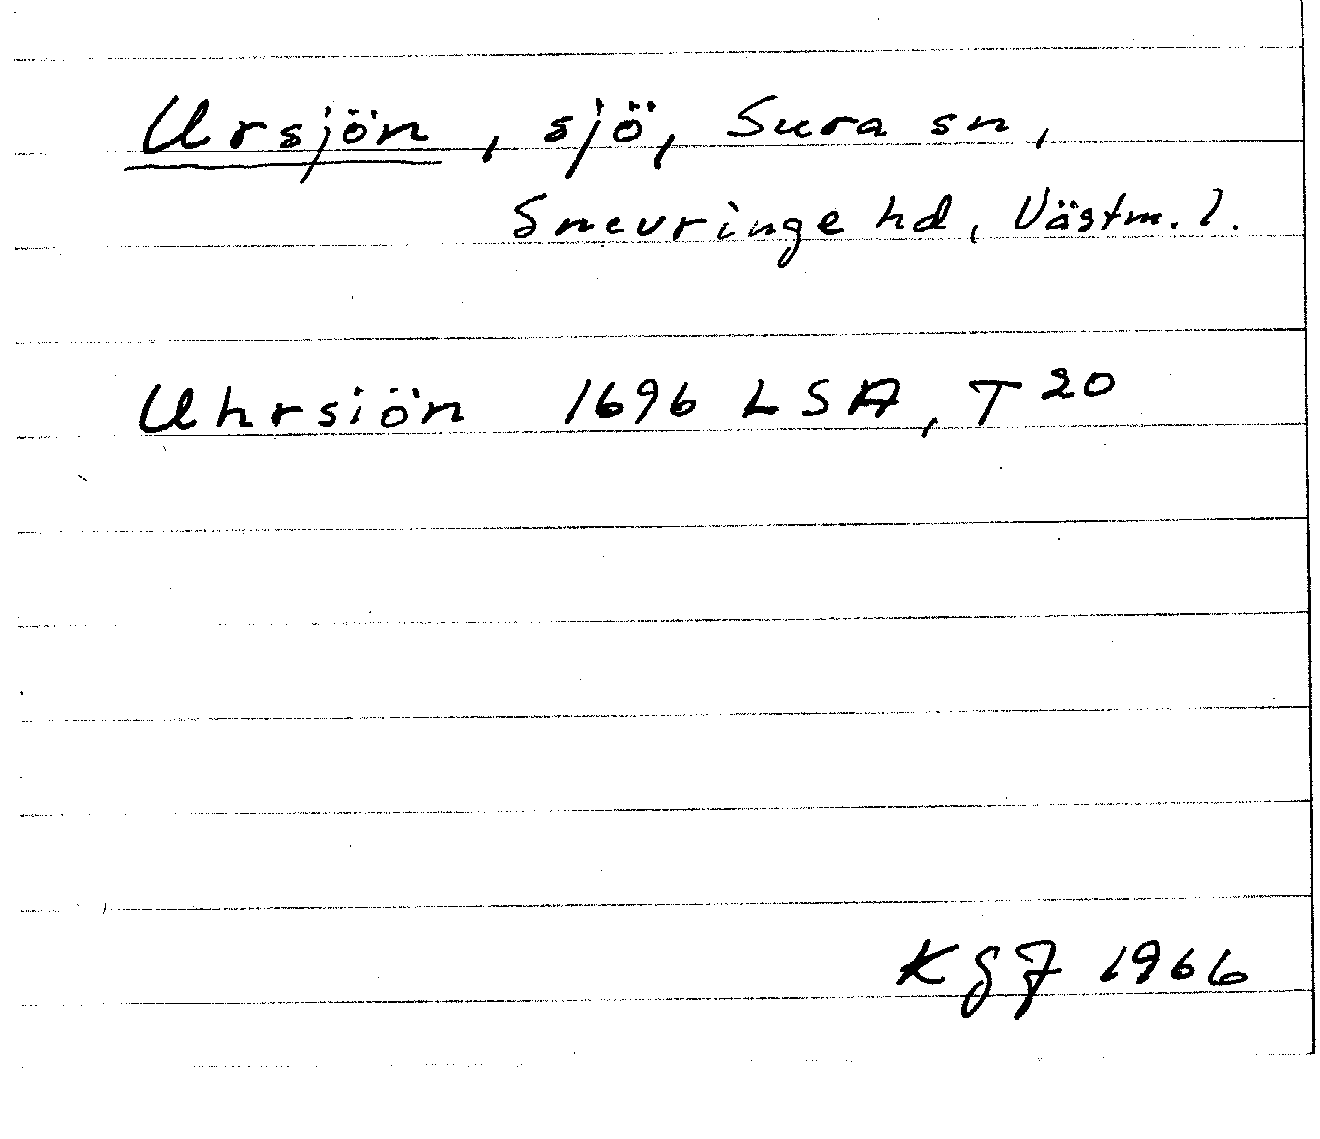 Ursjön, sjö, Sura sn,
Snevringe hd, Västm. l.
Uhrsiön 1696 LSA, T 20
KgF 1966